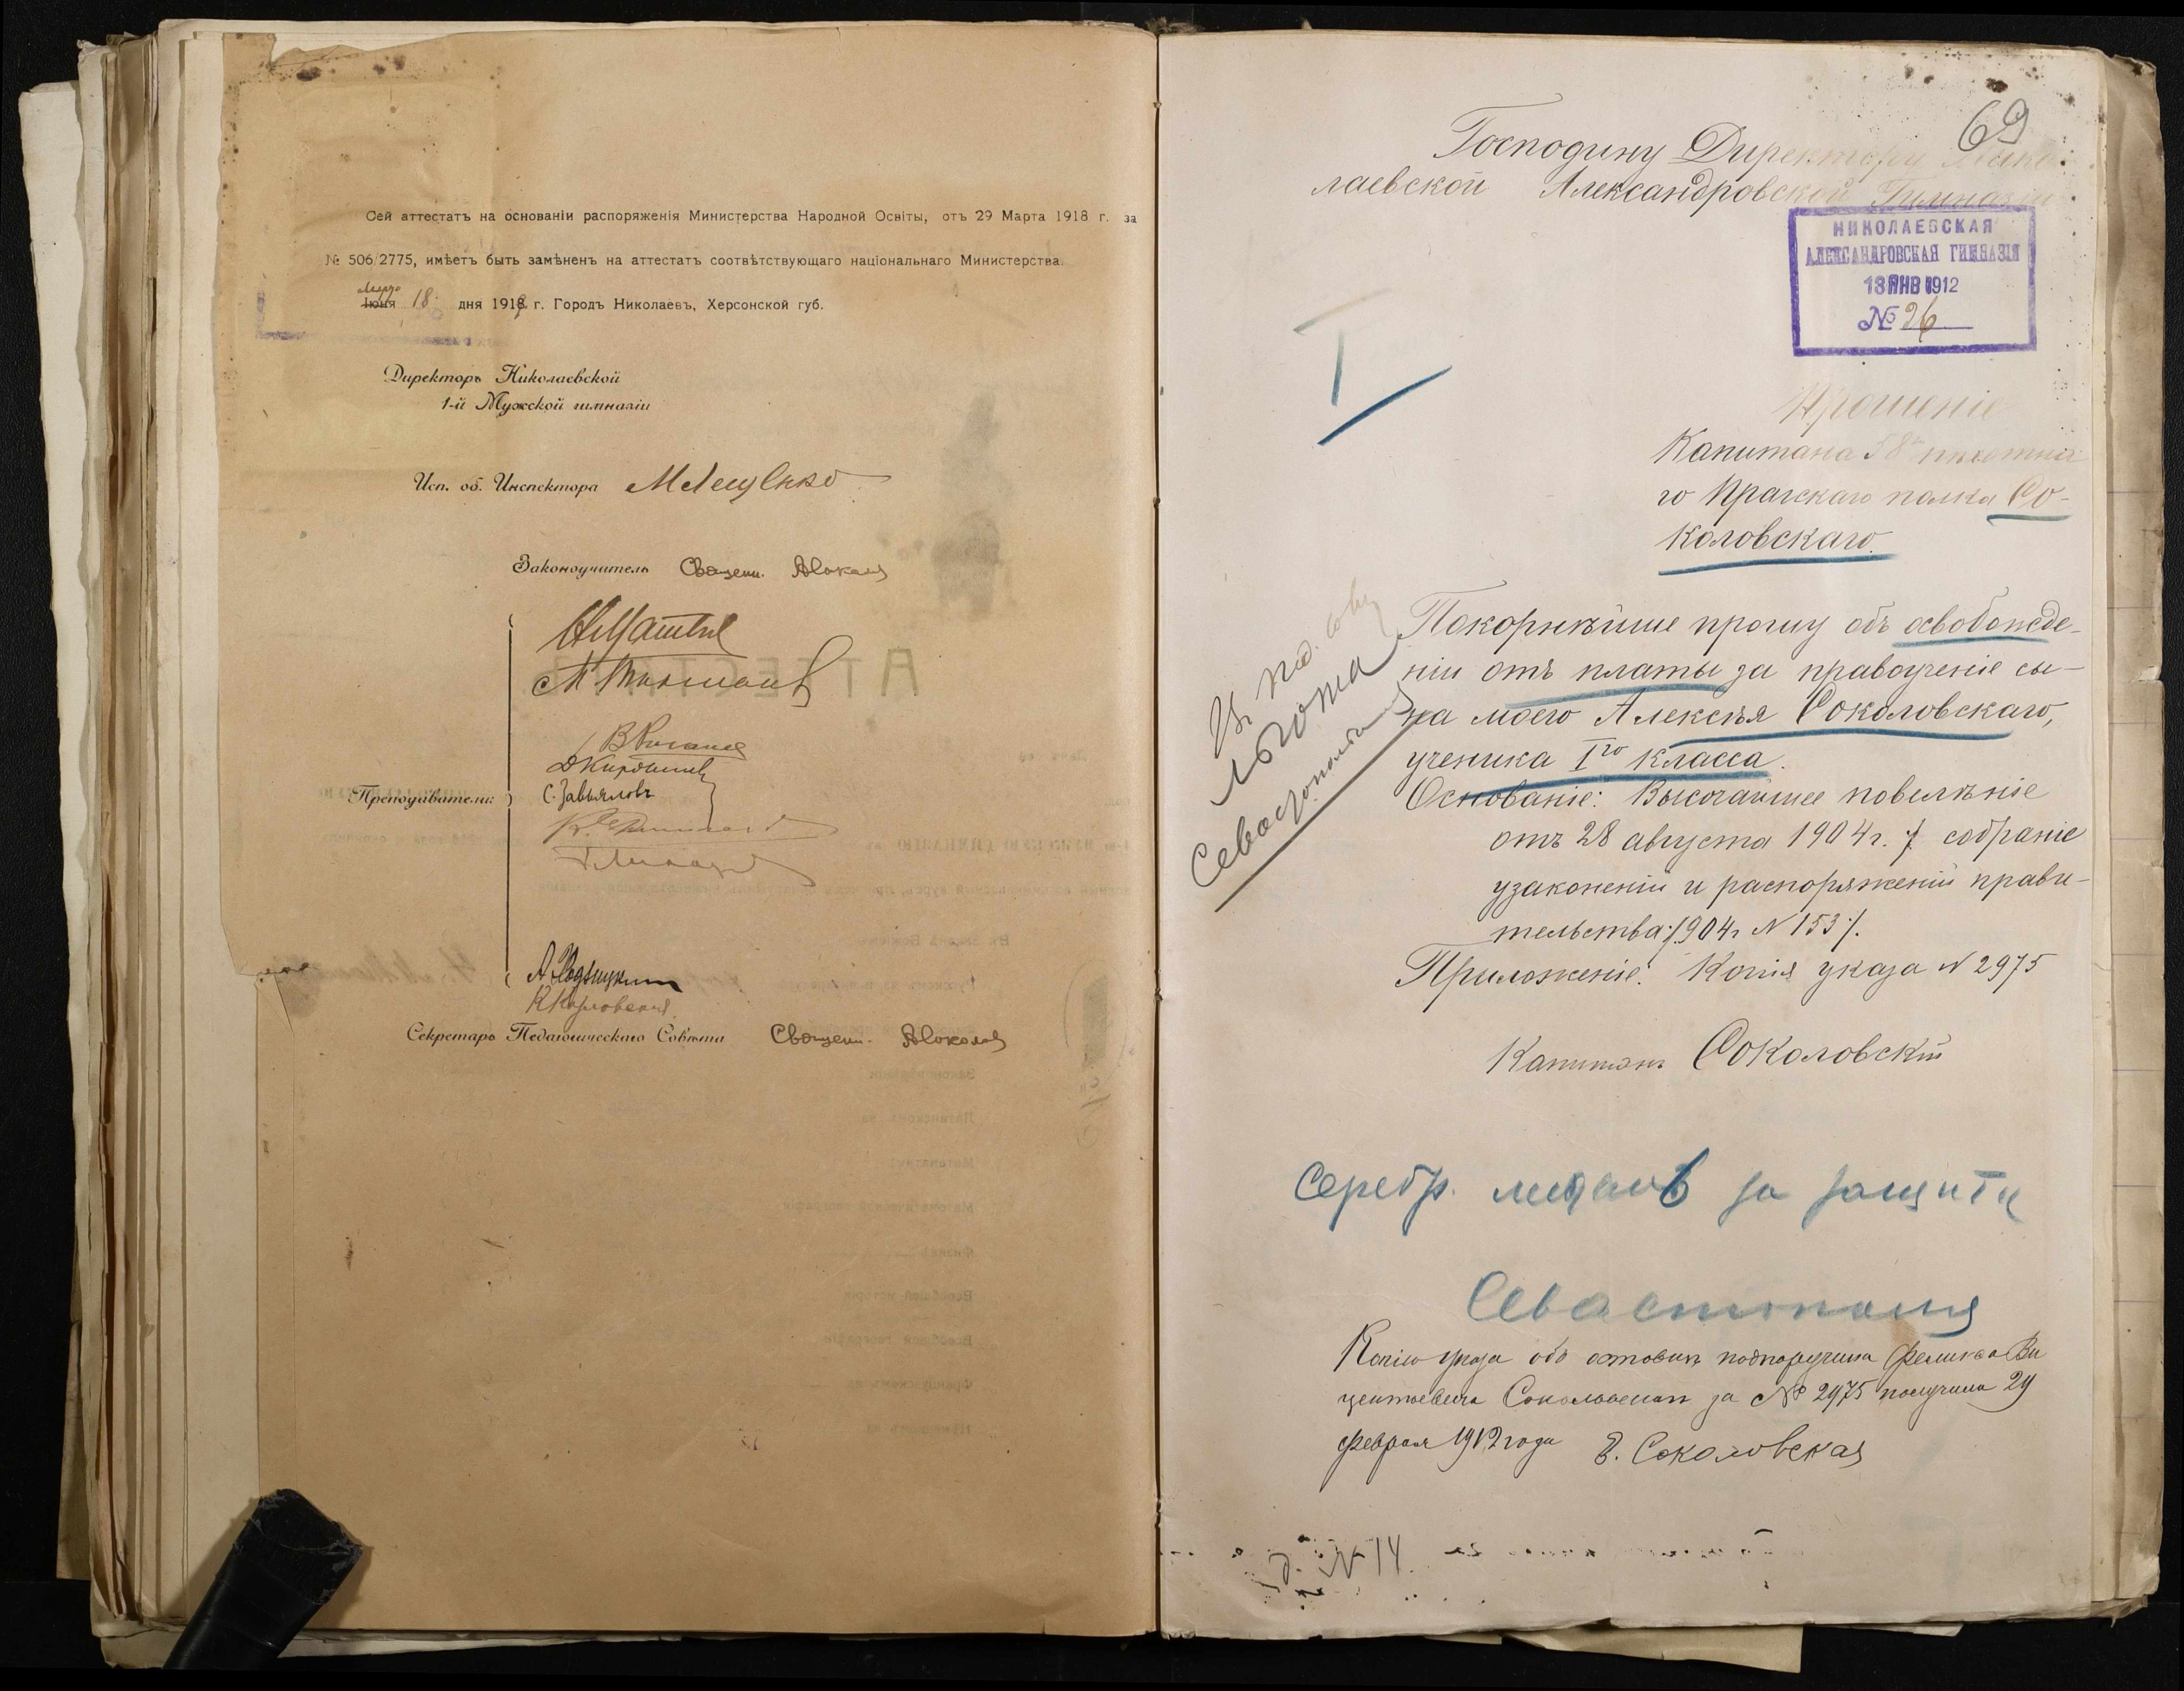 Сей аттестатъ на основаніи распоряженія Министерства Народной Освіты, отъ 29 Марта 1918 г. за
№ 506/2775, имѣетъ быть замѣненъ на аттестатъ соотвѣтствующаго національнаго Министерства.
Іюня 18 дня 1918 г. Городъ Николаевъ, Херсонской губ.
Директоръ Николаевской
1-й Мужской гимназіи
Исп. об. Инспектора
Законоучитель Священ.
Преподаватели:
С. Завьяловъ
Секретарь Педагогическаго Совѣта Священ.
69
Господину Директору Нико-
лаевской Александровской Гимназіи
НИКОЛАЕВСКАЯ
АЛЕКСАНДРОВСКАЯ ГИМНАЗІЯ
13 ЯНВ 1912
№ 26
I
Прошеніе
Капитана 58го пѣхотна-
го Прагскаго полка Со-
коловскаго.
льгота
Севастополь
Покорнѣйше прошу объ освобожде-
ніи отъ платы за правоученіе сы-
на моего Алексѣя Соколовскаго,
ученика Iго класса.
Основаніе: Высочайшее повелѣніе
отъ 28 августа 1904 г. /. собраніе
узаконеній и распоряженій прави-
тельства 1904 г N 153 /.
Приложеніе: Копія указа N 2975
Капитанъ Соколовскій
Серебр. медаль за защиту
Севастополя
Копію указа объ отставкѣ подпоручика Феликса Ви
центьевича Соколовскаго за № 2975 получила 29
февраля 1912 года Е. Соколовская
д. N 14.